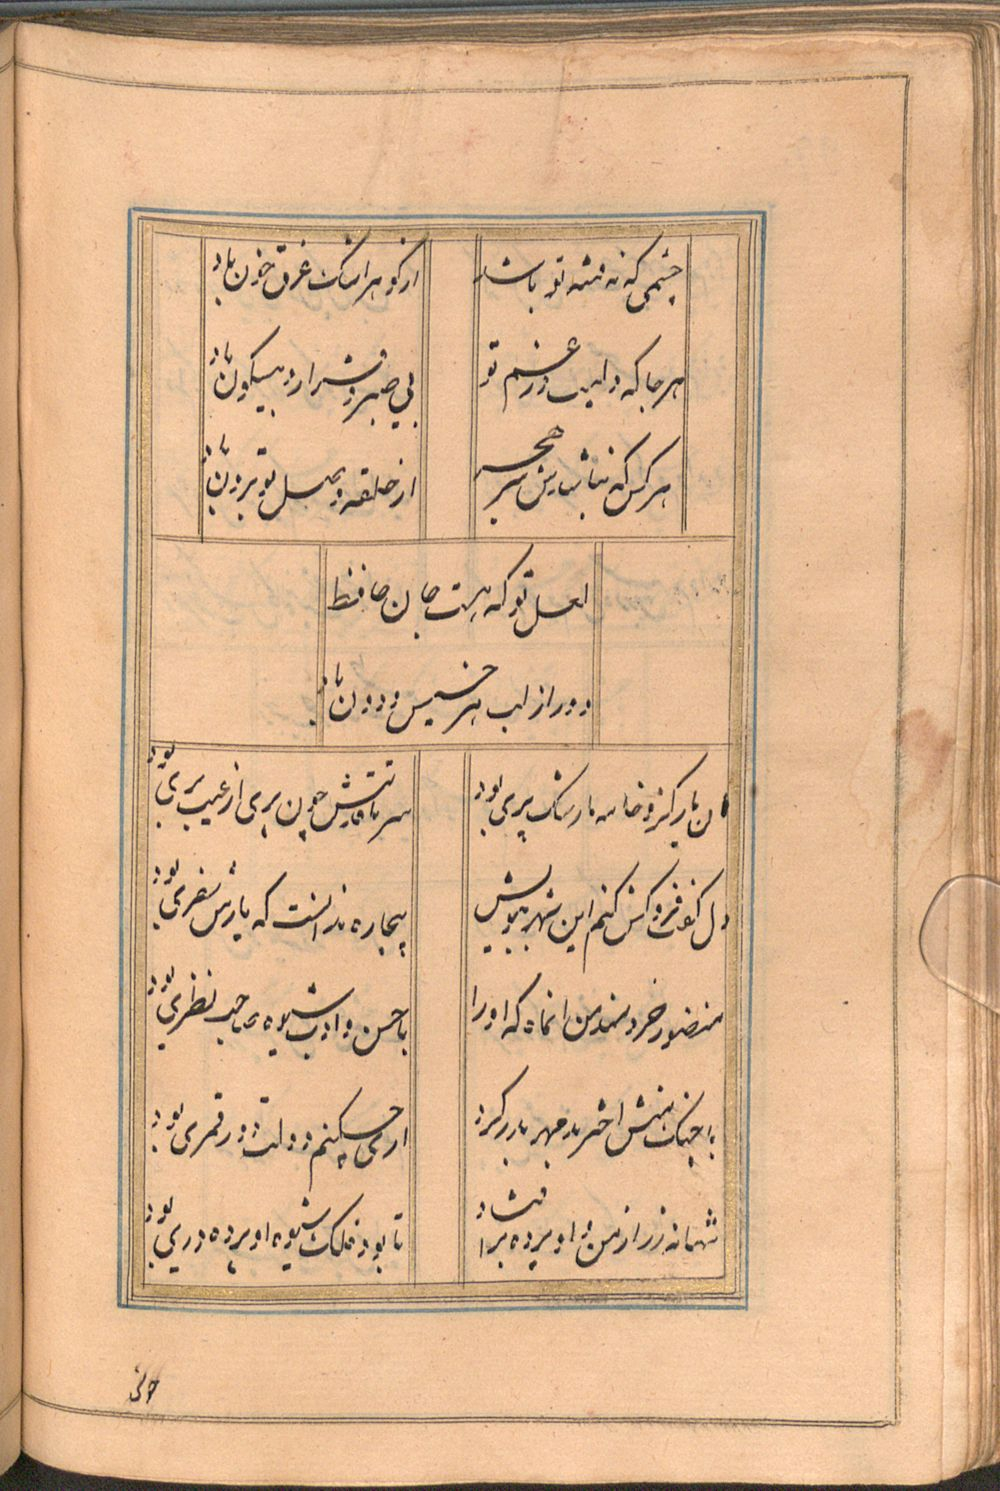 چشمی که نه فتنه تو باشد
از گوهر اشک غرق خون باد
هر جا که دلیست در غم تو
بی صبر و قرار و بیسکون باد
هر کس که نباشدش سر هجر
از حلقه وصل تو برون باد
لعل تو که هست جان حافظ
دور از لب هر خسیس و دون باد
آن یار کزو خانه ما رشک پری بود
سر تا قدمش چون پری از عیب بری بود
دل گفت فروکش کنم این شهر ببویش
بیچاره ندانست که یارش سفری بود
منظور خردمند من آن ماه که او را
با حسن و ادب شیوه صاحب نظری بود
از چنگ منش اختر بد مهر بدر کرد
اری چکنم دولت دور قمری بود
تنها نه ز راز من و او پرده بر افتاد
تا بود فلک شیوه او پرده دری بود